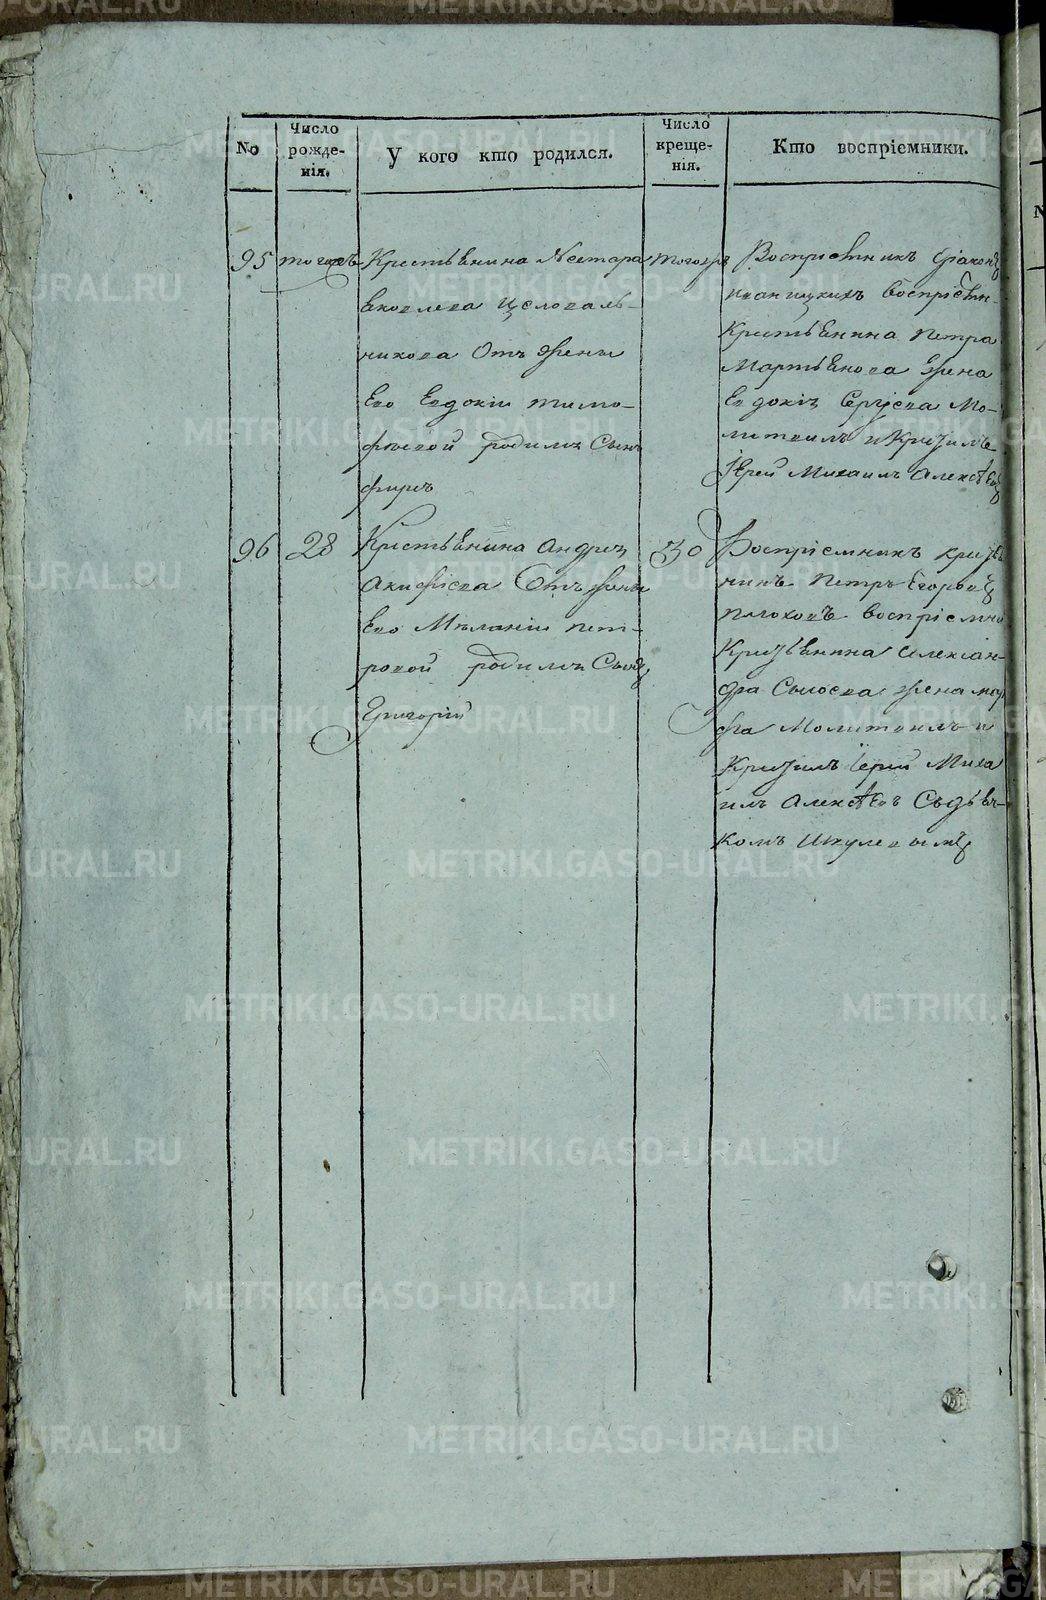 No
Число рожде-нія.
У кого кто родился.
Число креще-нія.
Кто воспріемники.
95
тогожъ
Крестьянина Нестара
Яковлева Целоваль-
никова Отъ жены
Его Евдокіи тимо-
фѣевой родился Сынъ
фирсъ
тогожъ
Воспріемникъ
воспріемн-
Крестьянина Петра
Мартьянова жена
Евдокія Сергѣева Мо-
литвилъ и Крестилъ
Іерей Михаилъ Алексѣевъ
96
28
Крестьянина Андрея
Акифіева Отъ жены
Его Мѣланіи пет-
ровой родился Сынъ
Григорій
30
Воспріемникъ
Петръ Егоровъ
плоховъ воспріемни
Крестьянина Алексан-
дра Сысоева жена мар
фа Молитвилъ и
Крестилъ Іерей Миха
илъ Алексѣевъ Съ дьяч-
комъ Шкулевымъ
METRIKI.GASO-URAL.RU